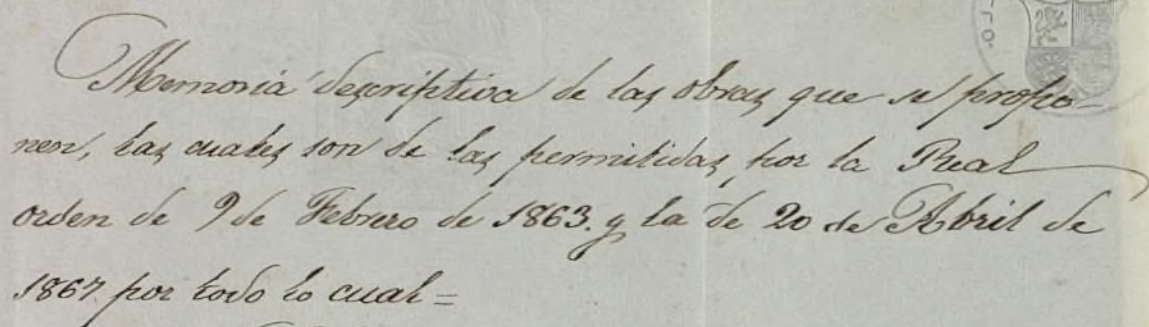 Memoria descriptiva de las obras que se propo-
nen, las cuales son de las permitidas, por la Real
orden de 9 de Febrero de 1863. y la de 20 de Abril de
1867 por todo lo cual=